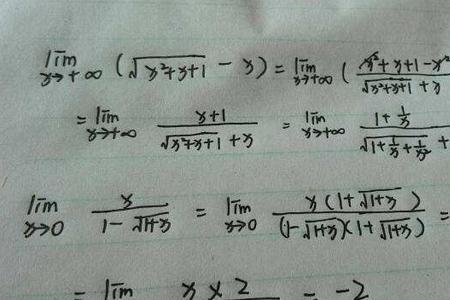 lim x→+∞ (√(x²+x+1) − x) = lim x→+∞ ( (x²+x+1−x²)/(√(x²+x+1) + x)
= lim x→+∞ (x+1)/(√(x²+x+1) + x) = lim x→+∞ (1+1/x)/(√(1+1/x+1/x²) +
lim x→0 x/(1−√(1+x)) = lim x→0 x(1+√(1+x))/((1−√(1+x))(1+√(1+x))) =
= lim x×2 = −2